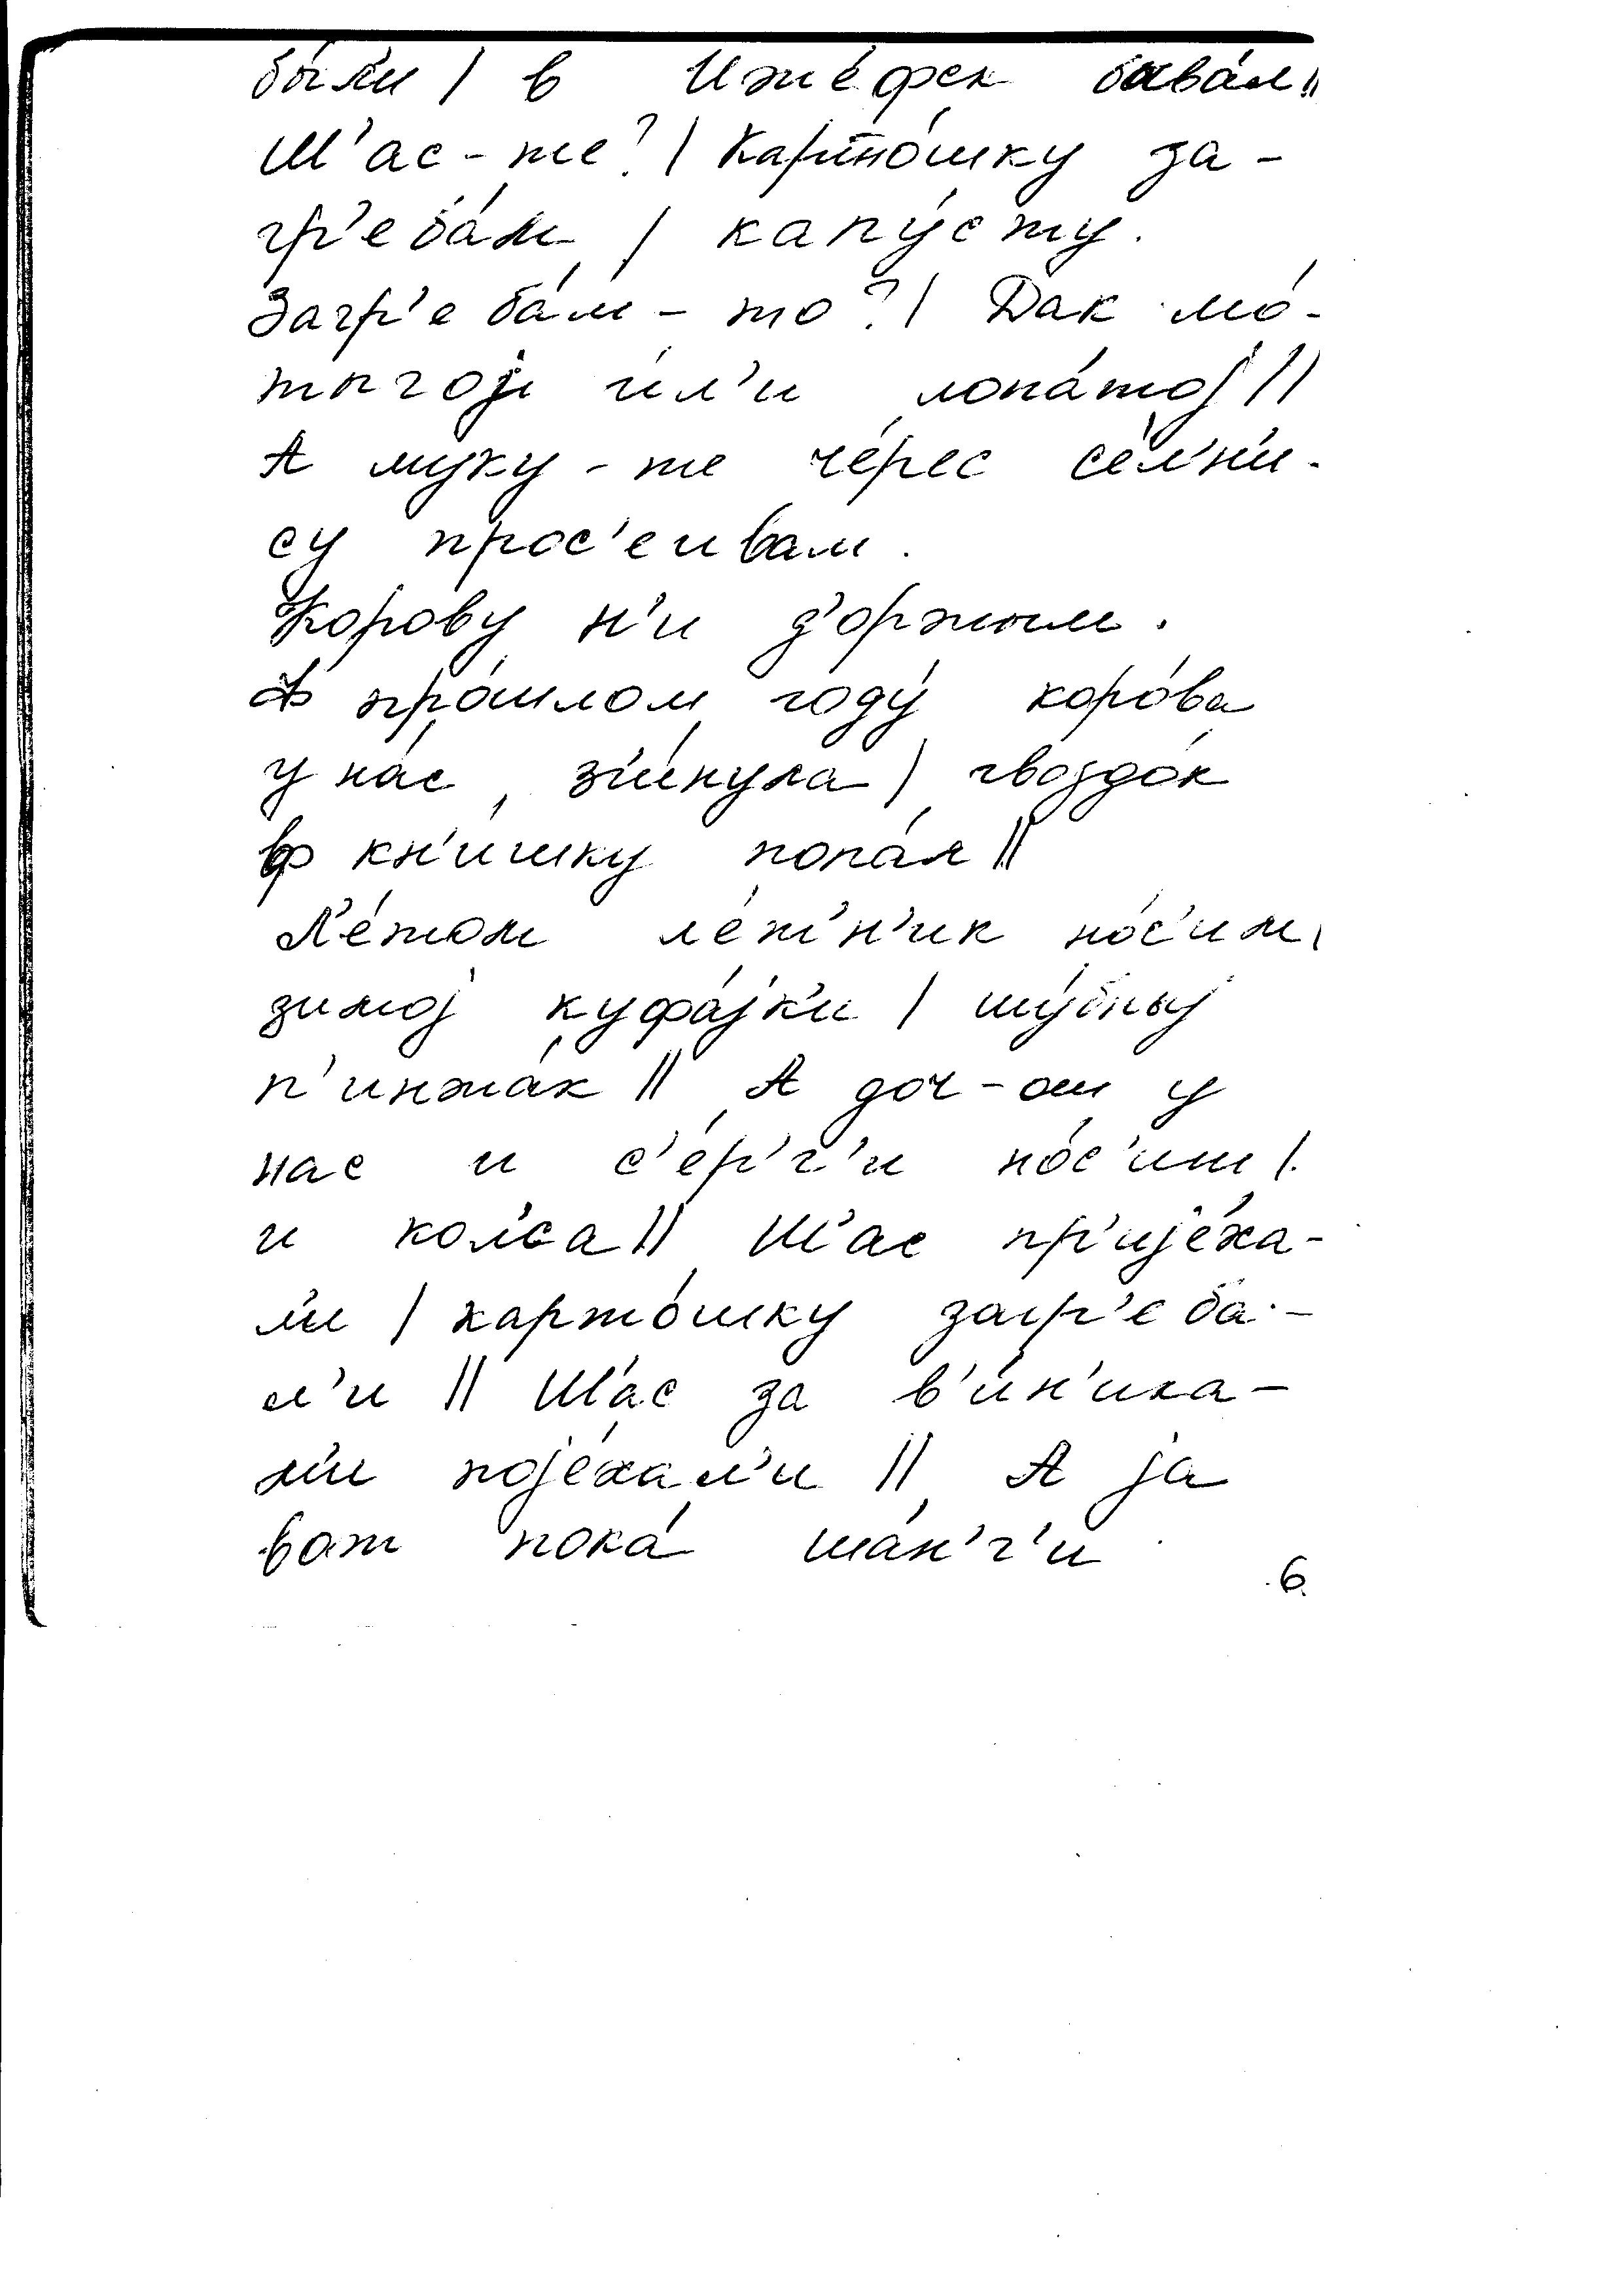 бы́л'и | в Иже́фск быва́л ||
Ш'ас-те? | Карто́шку за-
гр'еба́м | капу́сту.
Загр'еба́м-то? | Дак мо́-
тыгој и́л'и лопа́тој ||
А муку-те че́рес се́л'н'и-
су прос'еивам.
Корову н'и д'оржым.
А про́шлом году́ коро́ва
у на́с з'и́нула | гвоздо́к
ф кн'и́шку попа́л ||
Л'е́том ле́т'н'ик но́с'им,
зимој куфа́јк'и | шу́бныј
п'инжа́к || А доч-от у
нас и с'е́р'г'и но́с'ит |
и кол'са || Ш'ас пр'ије́ха-
л'и | карто́шку загр'еба-
л'и || Ш'ас за в'и́н'ика-
м'и поје́хал'и || А ја
вот пока́ ша́н'г'и
6